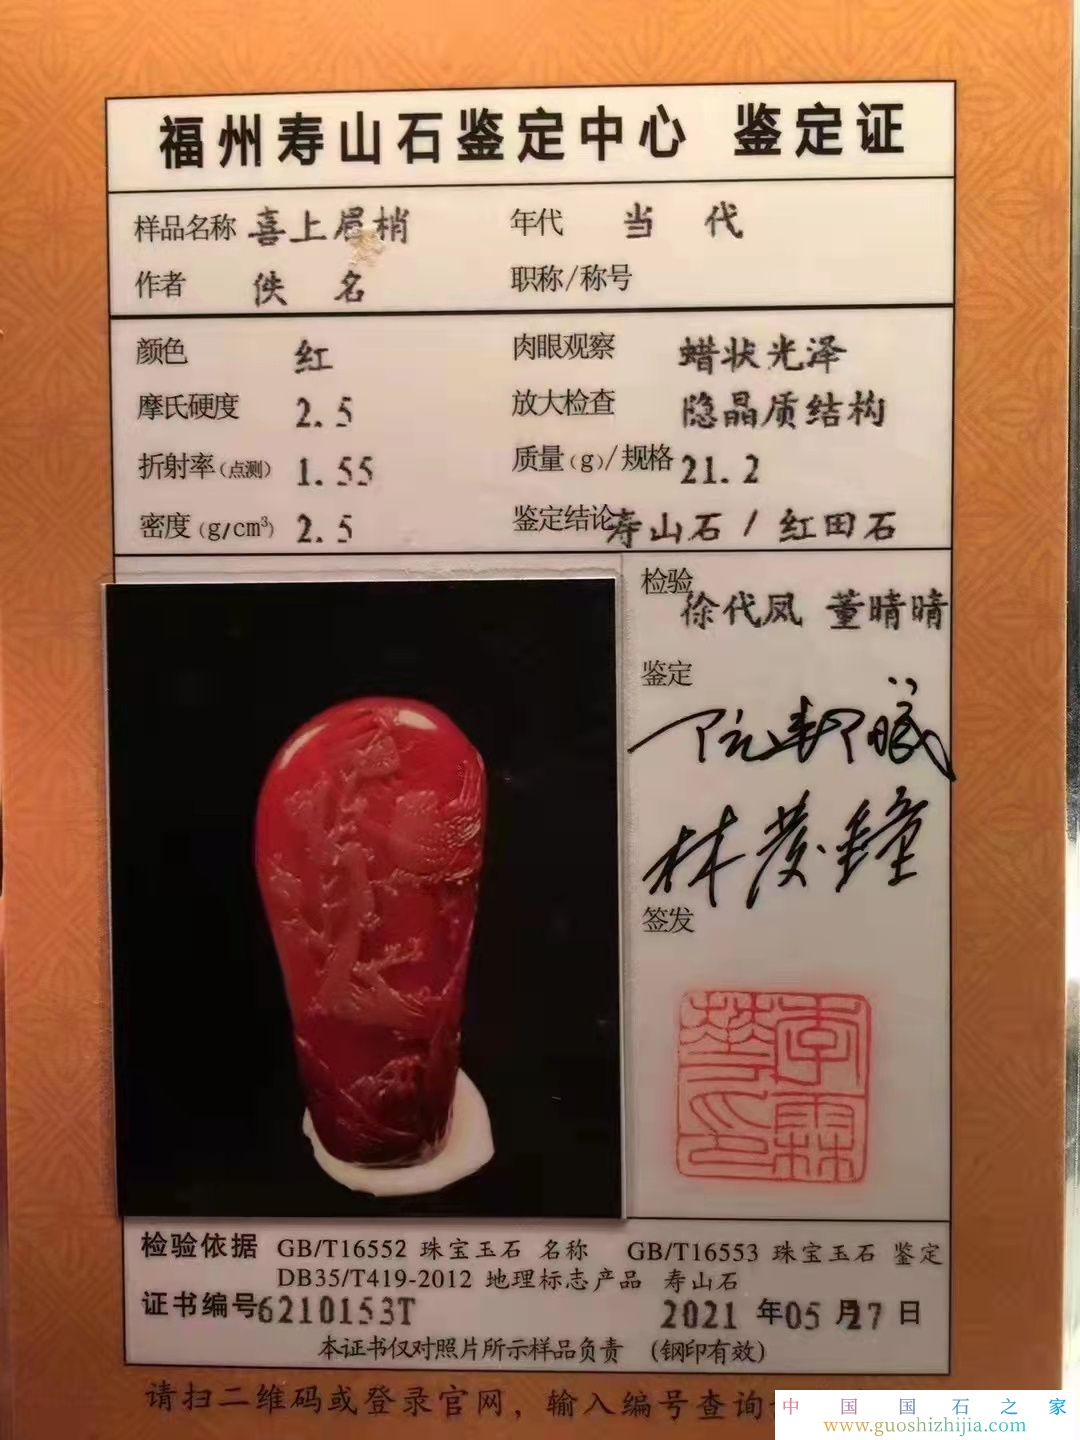 福州寿山石鉴定中心 鉴定证
样品名称 喜上眉梢 年代 当代
作者 佚名 职称/称号
颜色 红 肉眼观察 蜡状光泽
摩氏硬度 2.5 放大检查 隐晶质结构
折射率(点测) 1.55 质量(g)/规格 21.2
密度(g/cm³) 2.5 鉴定结论 寿山石/红田石
检验
徐代凤 董晴晴
鉴定
林发钟
签发
检验依据 GB/T16552 珠宝玉石 名称 GB/T16553 珠宝玉石 鉴定
DB35/T419-2012 地理标志产品 寿山石
证书编号6210153T 2021年05月27日
本证书仅对照片所示样品负责 (钢印有效)
请扫二维码或登录官网，输入编号查询
中国国石之家
www.guoshizhijia.com